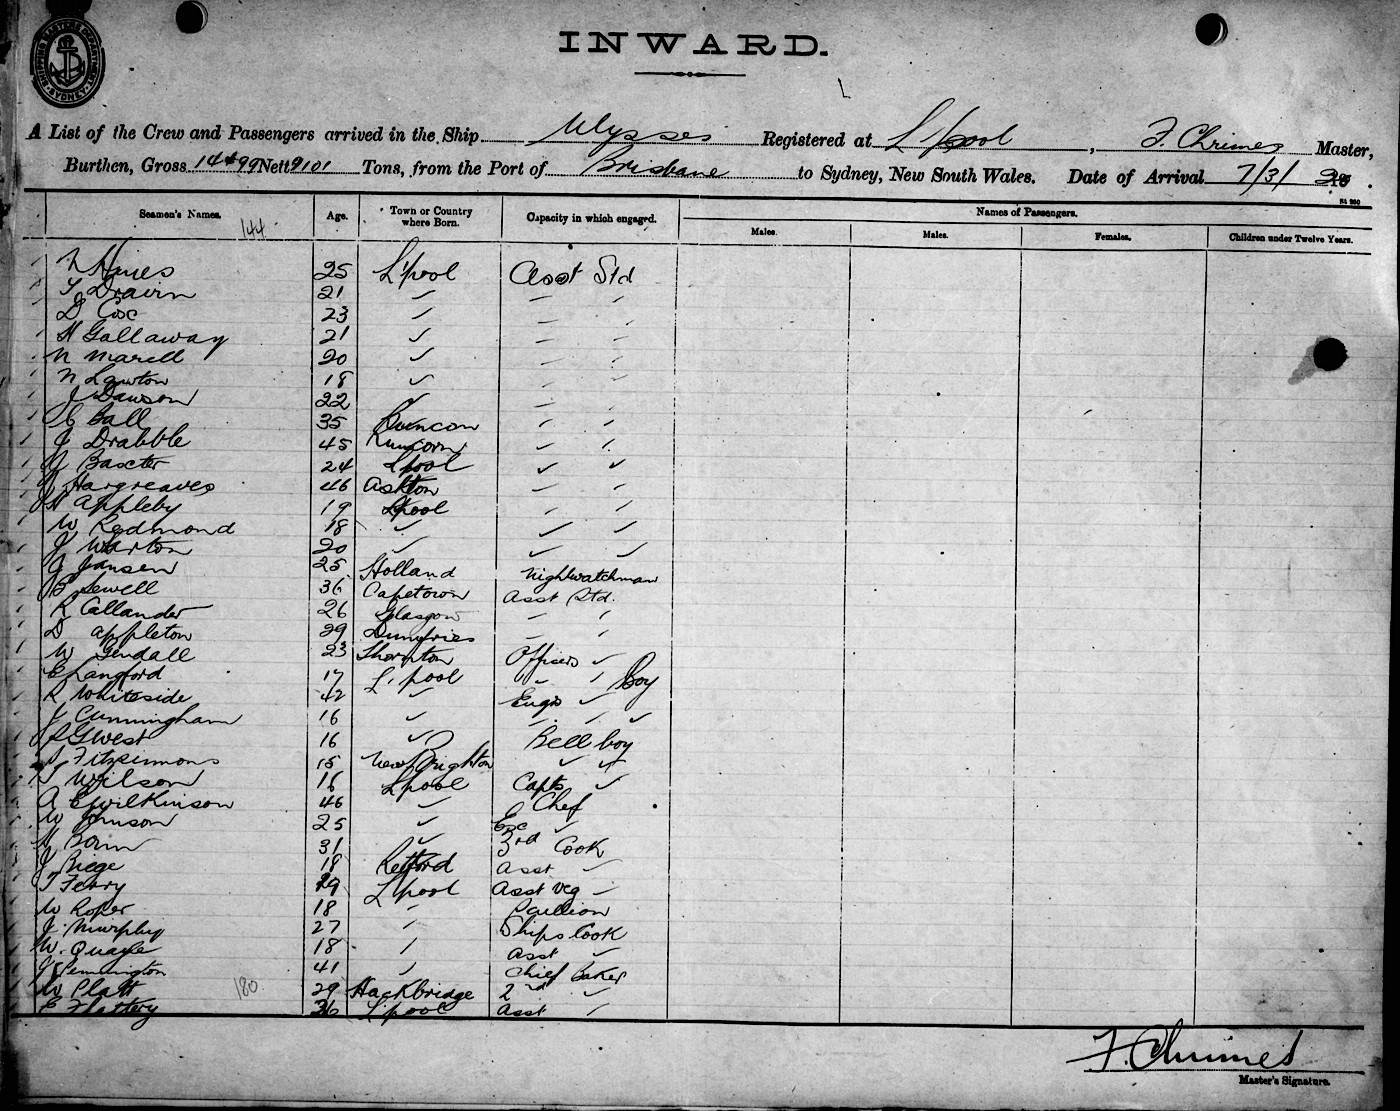 SHIPPING MASTERS DEPARTMENT SYDNEY
INWARD.
A List of the Crew and Passengers arrived in the Ship Ulysses Registered at L'pool, F. Chrimes Master,
Burthen, Gross 14499 Nett 9101 Tons, from the Port of Brisbane to Sydney, New South Wales. Date of Arrival 7/3/
Seamen's Names. Age. Town or Country where Born. Capacity in which engaged. Names of Passengers.
144
Males. Males. Females. Children under Twelve Years.
25 L'pool Asst Std
21 ✓
D Cox 23 ✓
H Gallaway 21 ✓
20 ✓
N Lawton 18 ✓
J Dawson 22 ✓
Ball 35
J Drabble 45 Runcorn
Baxter 24 L'pool ✓ ✓
Hargreaves 46 Ashton
H Appleby 19 L'pool
W Redmond 18 ✓ ✓ ✓
J Warton 20 ✓ ✓ ✓
Jansen 25 Holland Nightwatchman
Sewell 36 Capetown Asst Std.
R Callander 26 Glasgow
D Appleton 29 Dumfries
W Gendall 23 Thornton Officers ✓
E Langford 17 L'pool Boy
R Whiteside 42 ✓ Engrs ✓
J Cunningham 16 ✓
West 16 ✓ Bell boy
Fitzsimons 15 New Brighton ✓ ✓
Wilson 16 L'pool Capts ✓
A E Wilkinson 46 ✓ Chef
W Jonson 25 ✓
31 ✓ 3rd Cook
18 Retford Asst ✓
29 L'pool Asst Veg
W Roper 18
J. Murphy 27 Ships Cook
W. Quayle 18 Asst ✓
41 Chief Baker
W Platt 29 Hackbridge 2nd ✓
180
E Flattery L'pool Asst ✓
F. Chrimes
Master's Signature.